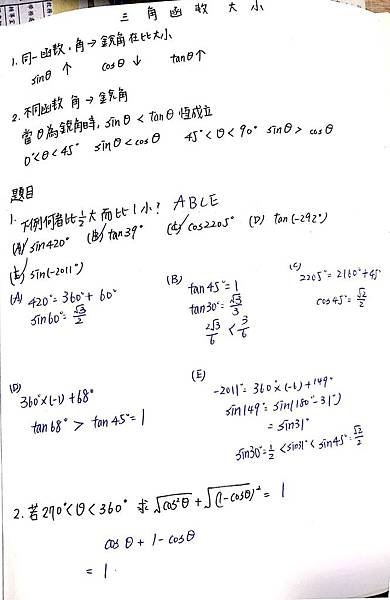 三角函數大小
1. 同一函數,角→銳角在比大小
sinθ ↑ cosθ ↓ tanθ ↑
2. 不同函數 角→銳角
當θ為銳角時, sinθ < tanθ 恆成立
0°<θ<45° sinθ<cosθ 45°<θ<90° sinθ > cosθ
題目
1. 下例何者比½大而比1小? ABCE
(A) sin420° (B) tan39° (C) cos2205° (D) tan(-292°)
(E) sin(-2011°)
(A) 420°=360°+60°
sin60°=√3/2
(B) tan45°=1
tan30°=√3/3
2√3/6 < 3/6
(C) 2205°=2160°+45°
cos45°=√2/2
(D)
360°×(-1)+68°
tan68° > tan45°=1
(E)
-2011°=360°×(-6)+149°
sin149°=sin(180°-31°)
=sin31°
sin30°=½<sin31°<sin45°=√2/2
2. 若270°<θ<360° 求√cos²θ+√(1-cosθ)²= 1
cosθ+1-cosθ
=1.